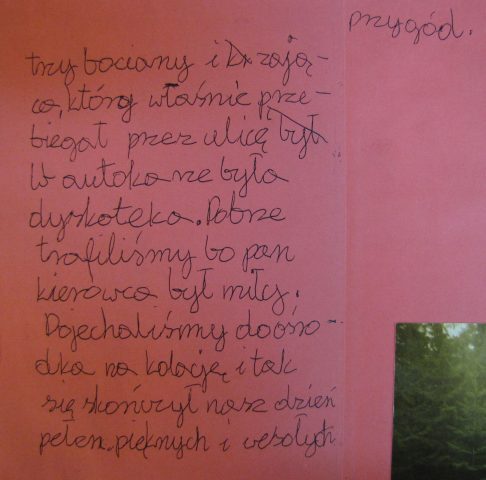 trzy bociany i zają-
ca, który właśnie prze-
biegał przez ulicę był
W autokarze była
dyskoteka. Dobrze
trafiliśmy bo pan
kierowca był miły.
Dojechaliśmy do ośro-
dka na kolację, i tak
się skończył nasz dzień
pełen pięknych i wesołych
przygód.